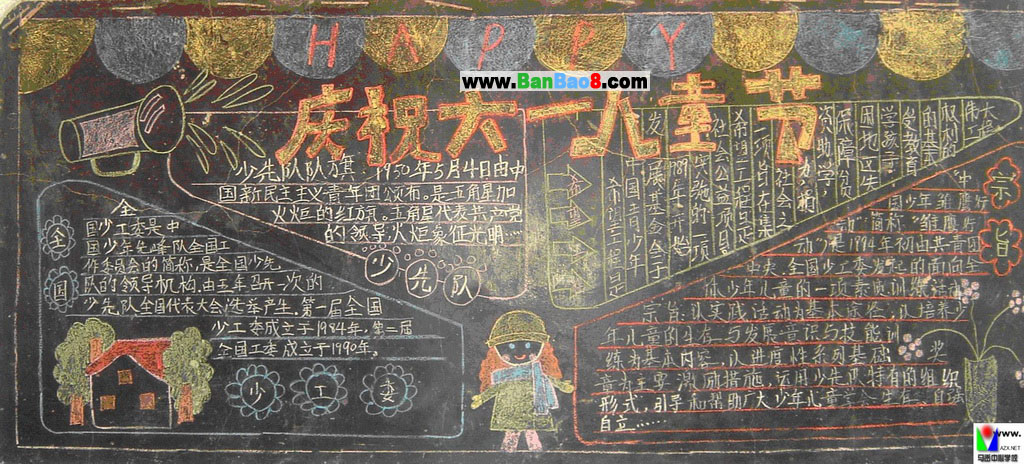 HAPPY
www.BanBao8.com
庆祝六一儿童节
少先队队旗:1950年5月4日由中
国新民主主义青年团颁布。是五角星加
火炬的红旗。五角星代表共产党
的领导,火炬象征光明……
少先队
全
国少工委是中
国少年先锋队全国工
作委员会的简称,是全国少先
队的领导机构,由五年召开一次的
少先队全国代表大会选举产生,第一届全国
少工委成立于1984年,第二届
全国工委成立于1990年。
全国
少工委
希望工程是
中国青少年
发展基金会于
1989年开始
实施的一项
社会公益项目
希望工程是
一项旨在集
社会之
力,捐
资助学,
保障贫
困地区失
学孩子
受教育
的基本
权利的
伟大工程
宗旨
"中
国少年雏鹰行
动"简称"雏鹰行
动",是1994年初由共青团
中央、全国少工委发起的面向全
体少年儿童的一项素质训练活动
宗旨:以实践活动为基本途径,以培养少
年儿童的生存与发展意识与技能训
练为基本内容,以进度性系列基础奖
章为主要激励措施,运用少先队特有的组织
形式,引导和帮助广大少年儿童学会生存、自强
自立……
www.
AZX.NET